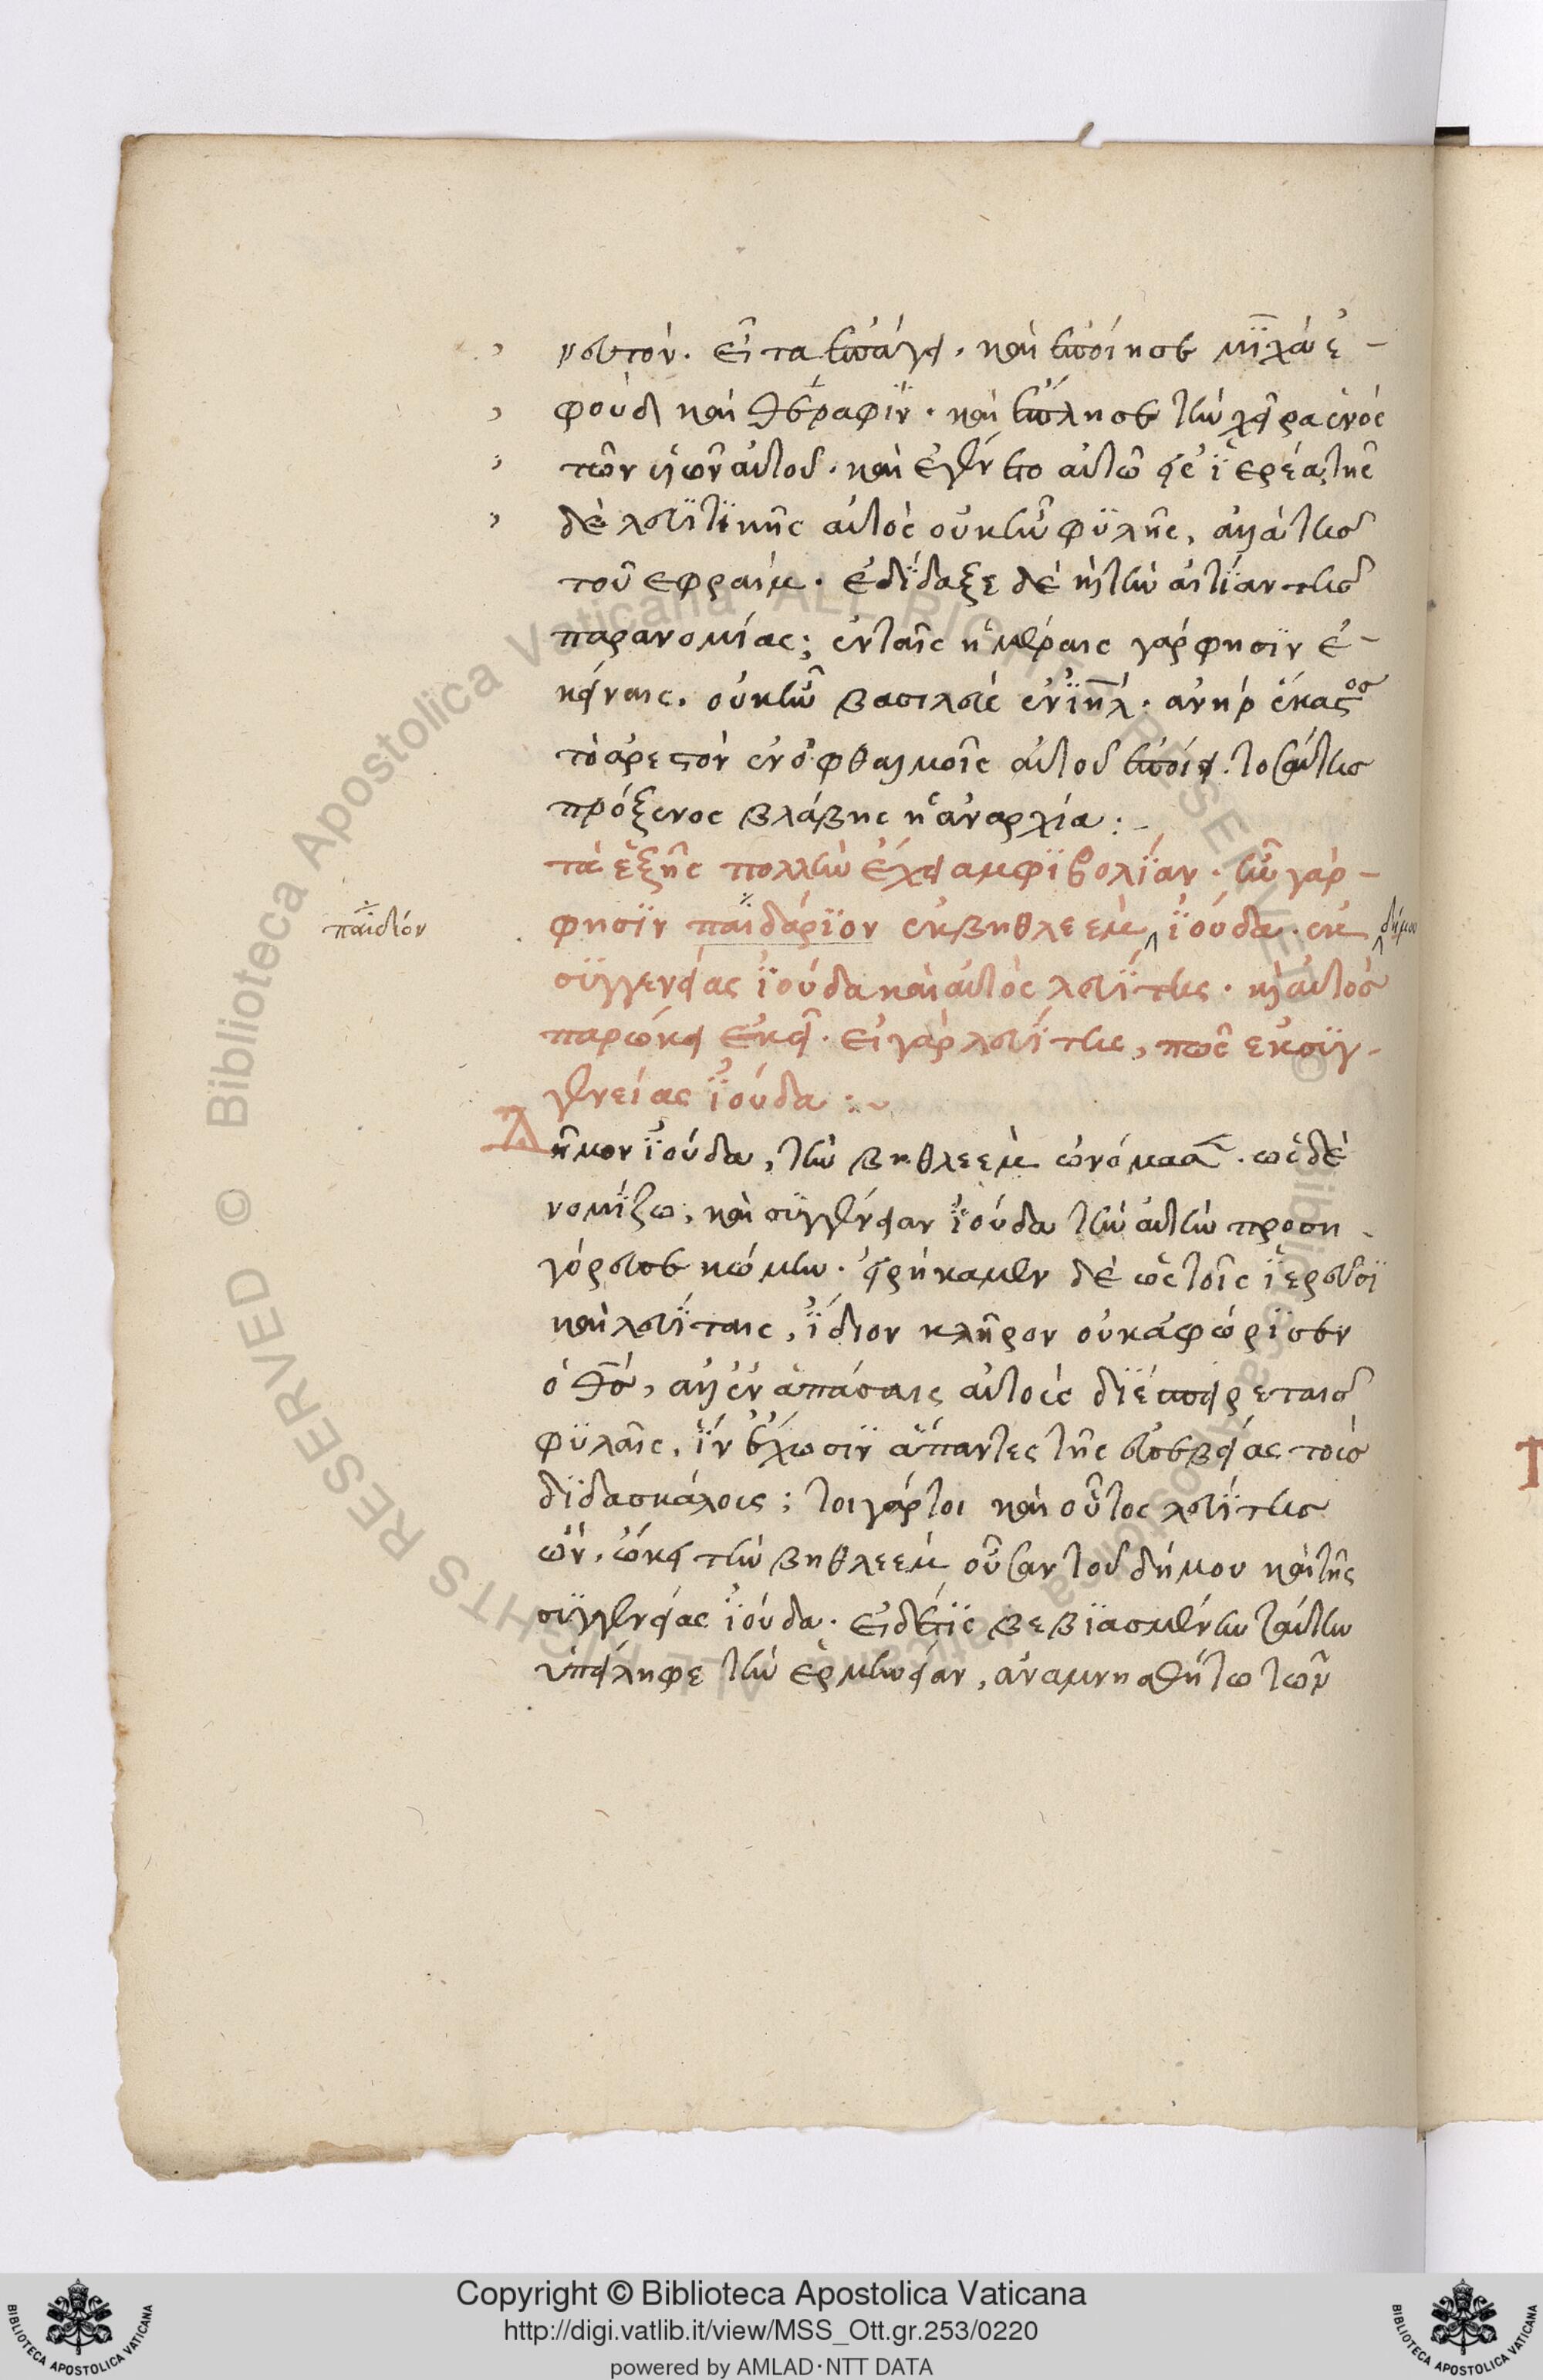 νευτόν. εἶτα ἐπάγει. καὶ ἐποίησε μϊχὰ ἐ-
φοὺδ καὶ θεραφίν. καὶ ἔπλησε τὴν χεῖρα ἑνὸς
τῶν υἱῶν αὐτοῦ. καὶ ἐγένετο αὐτῶ εἰς ἱερέα, τῆς
δὲ λευϊτϊκῆς αὐτὸς οὐκ ἦν φϋλῆς, ἀλλὰ τῆς
τοῦ εφραίμ. ἐδίδαξε δὲ καὶ τὴν αἰτίαν τῆς
παρανομίας; ἐν ταῖς ἡμέραις γάρ φησϊν ἐ-
κείναις. οὐκ ἦν βασιλεὺς ἐν ϊηλ. ἀνὴρ ἕκαστος
τὸ αρεστὸν ἐν ὀφθαλμοῖς αὐτοῦ ἐποίει. τοσαύτης
πρόξενος βλάβης ἡ ἀναρχία:-
τὰ ἑξῆς πολλὴν ἔχει αμφϊβολΐαν. ἦν γάρ-
φησϊν παιδάριον ἐκ βηθλεὲμ ἰούδα. ἐκ
δήμου
παιδίον
συγγενείας ἰούδα καὶ αὐτὸς λευΐτης. καὶ αὐτὸς
παρώκει ἐκεῖ. εἰ γὰρ λευΐτης, πῶς ἐκ συγ-
γενείας ἰούδα:~
Δῆμον ἰούδα, τὴν βηθλεὲμ ὠνόμασε. ὡς δὲ
νομίζω, καὶ συγγένειαν ἰούδα τὴν αὐτὴν προση-
γόρευσε κώμην. εἰρήκαμεν δὲ ὡς τοῖς ἱερεῦσϊ
καὶ λευΐταις, ἴδιον κλῆρον οὐκ ἀφώρϊσεν
ὁ θς, ἀλλ' ἐν ἁπάσαις αὐτοὺς διέσπειρε ταῖς
φϋλαῖς, ἵν' ἔχωσϊν ἅπαντες τῆς εὐσεβείας τοὺς
διδασκάλους; τοιγάρτοι καὶ οὗτος λευΐτης
ὢν, ὤκει τὴν βηθλεὲμ οὖσαν τοῦ δήμου καὶ τῆς
συγγενείας ἰούδα. εἰ δέ τϊς βεβϊασμένην ταύτην
ὑπείληφε τὴν ἑρμηνείαν, ἀναμνησθήτω τῶν
Copyright © Biblioteca Apostolica Vaticana
http://digi.vatlib.it/view/MSS_Ott.gr.253/0220
powered by AMLAD·NTT DATA
BIBLIOTECA APOSTOLICA VATICANA
BIBLIOTECA APOSTOLICA VATICANA